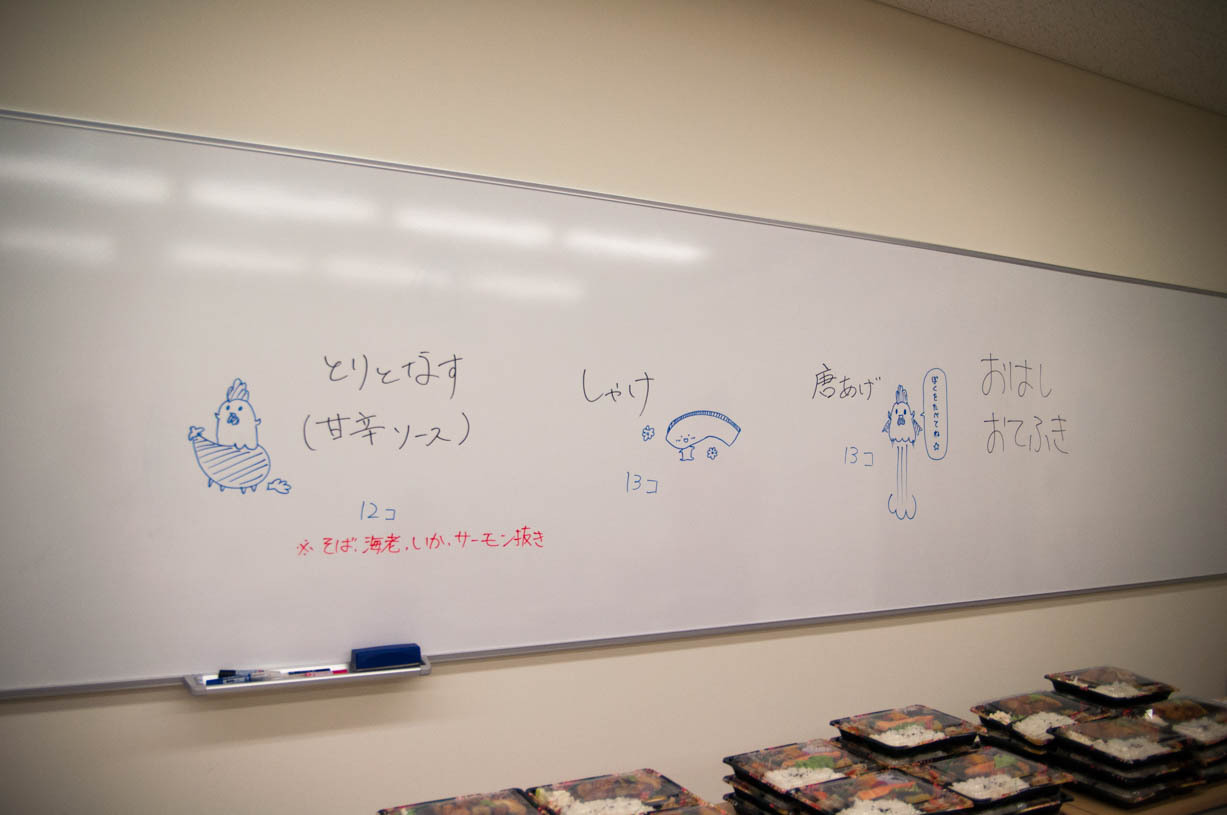 とりとなす
(甘辛ソース)
12コ
※そば、海老、いか、サーモン抜き
しゃけ
13コ
唐あげ
13コ
ぼくをたべてね☆
おはし
おてふき